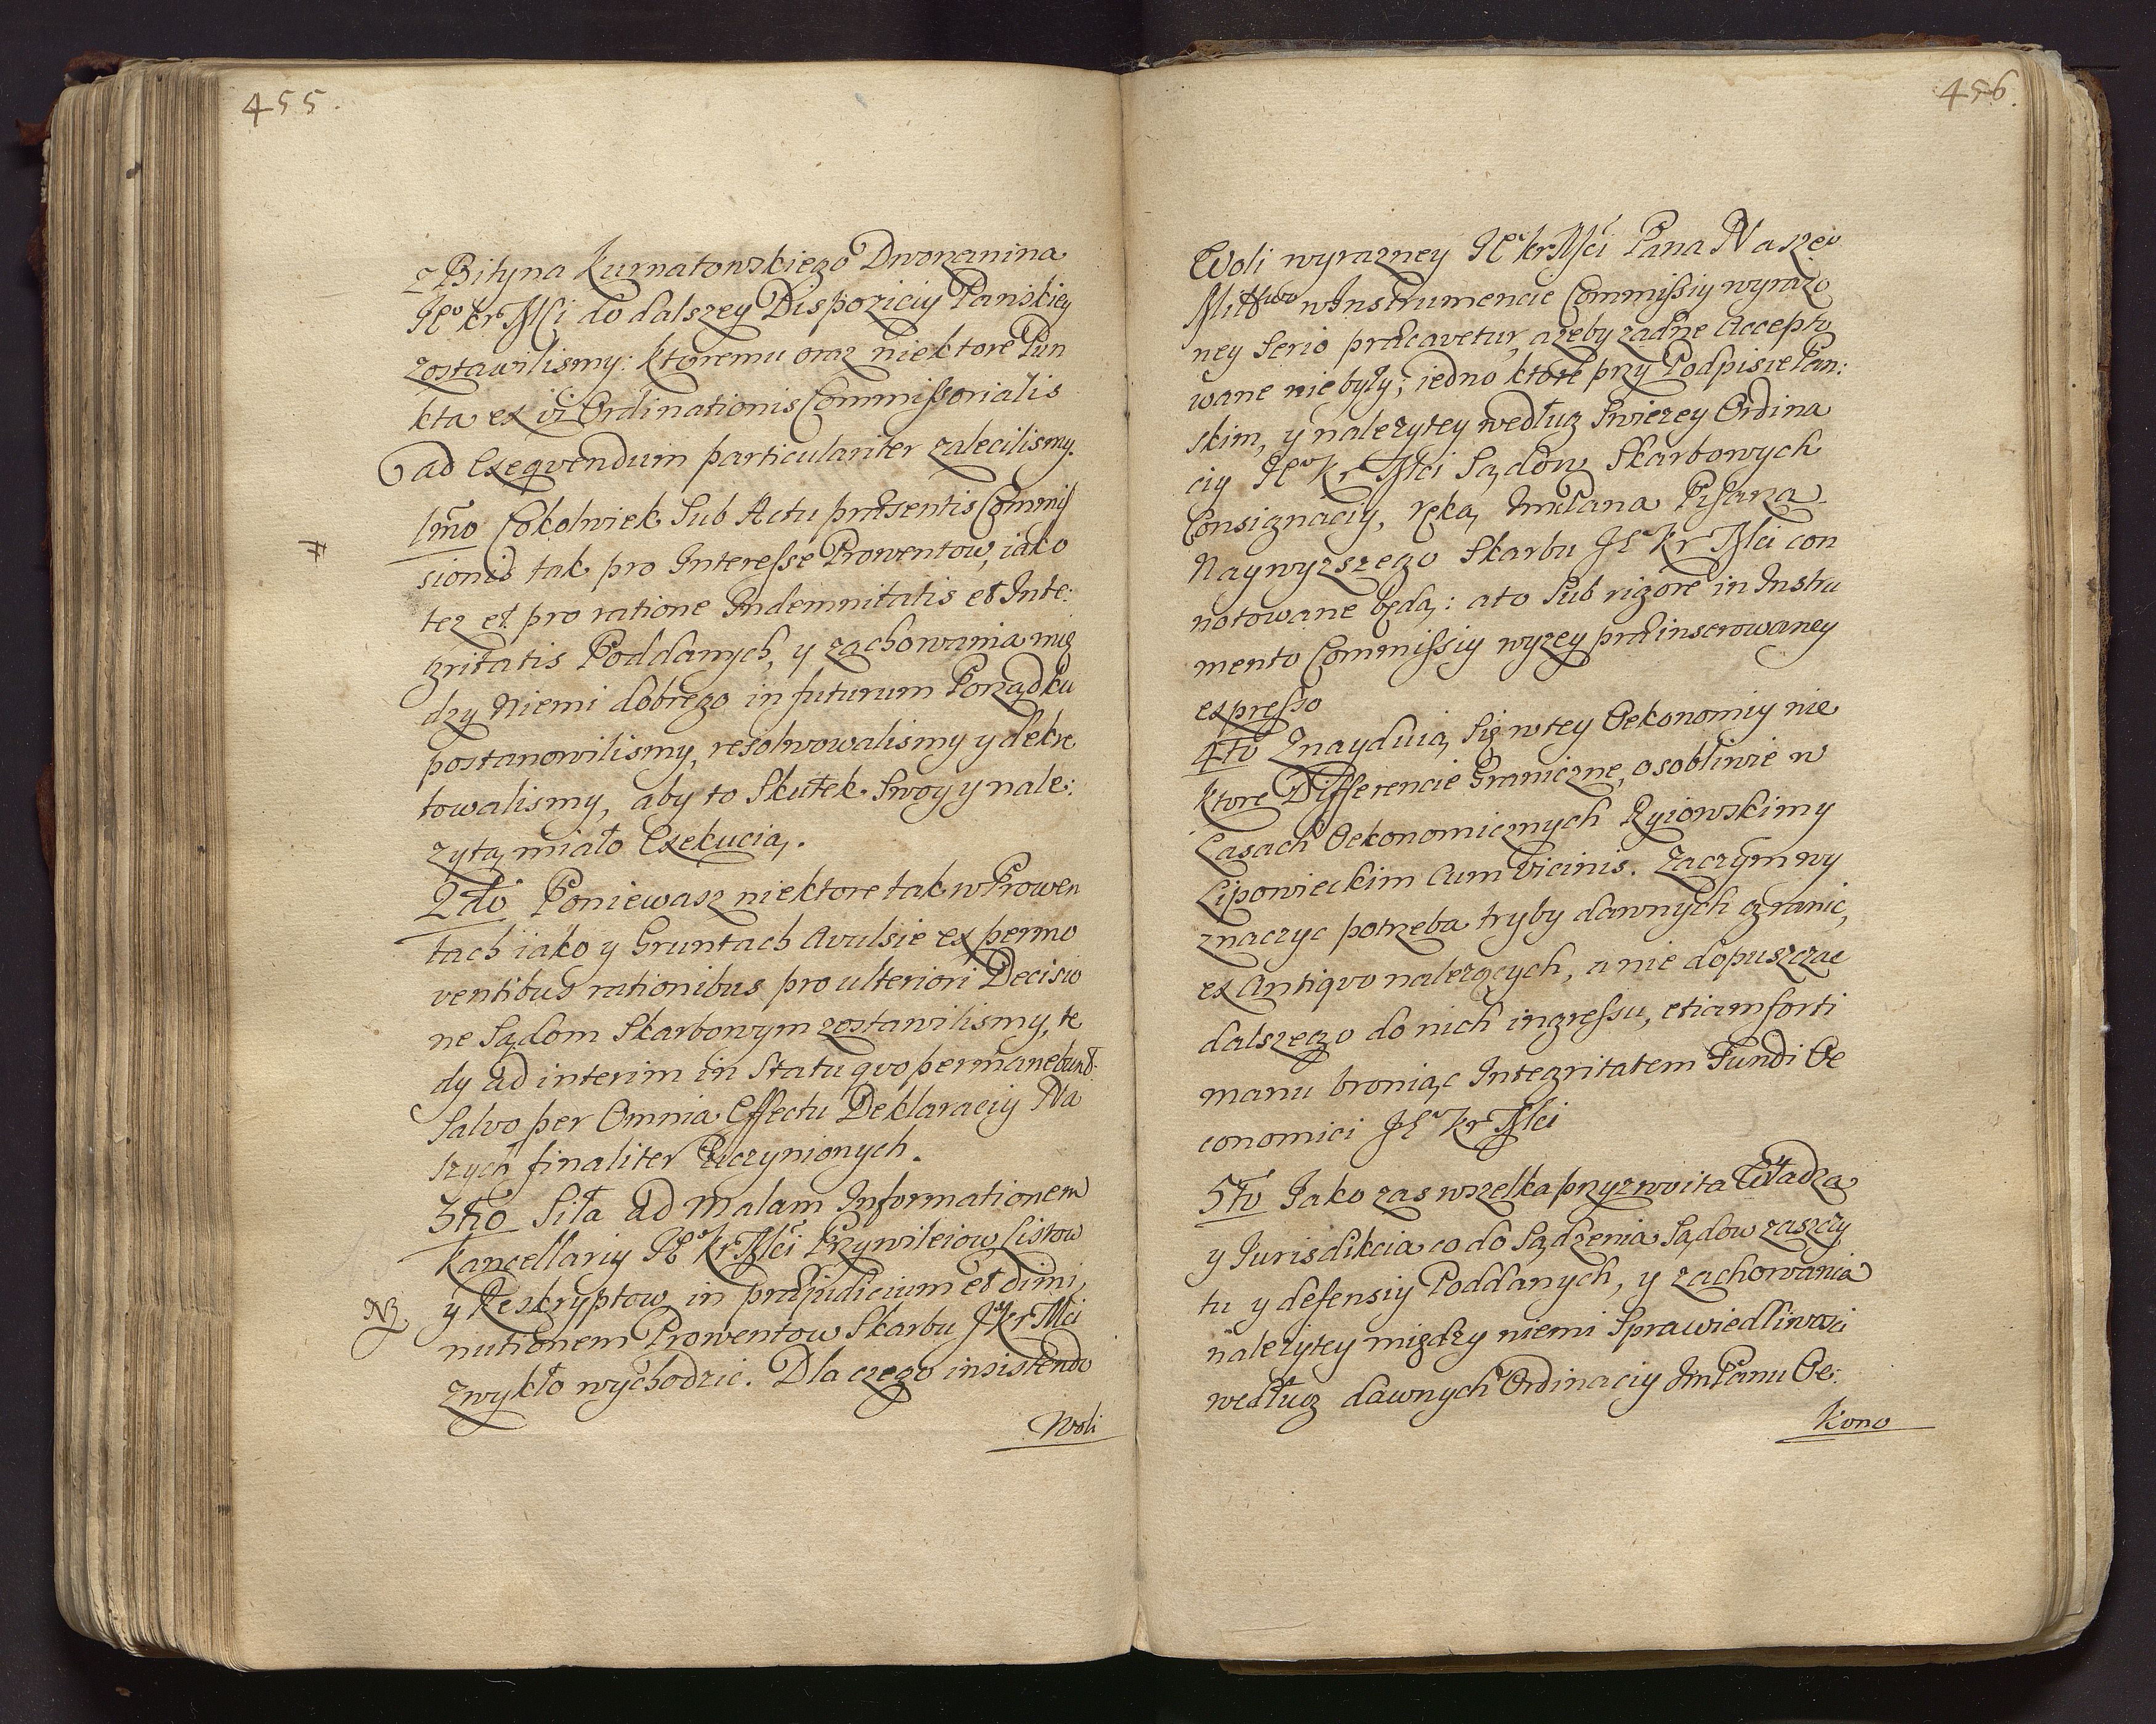 455.
z Bityna Kurnatowskiego Dworzanina
Je° Kr Mści do dalszey Dispoziciy Pańskiey
zostawilismy: ktoremu oraz niektore Pun
kta ex vi Ordinationis Commissorialis
ad Exeqvendum particulariter zalecilismy.
1mo Cokolwiek Sub Actu præsentis Commis
sionis tak pro Interesse Prowentow, iako
tez et pro ratione Indemnitatis et Inte:
gritatis Poddanych, y zachowania mię
dzy Niemi dobrego in futurum Porządku
postanowilismy, resolwowalismy y dekre
towalismy, aby to Skutek Swoy y nale:
zytą miało Exekucią.
2do Poniewasz niektore tak w Prowen
tach iako y Gruntach Avulsie ex permo
ventibus rationibus pro ulteriori Decisio
ne Sądom Skarbowym zostawilismy, te
dy ad interim in Statu qvo permanebunt.
Salvo per Omnia Effectu Deklaraciy Na
szych finaliter Uczynionych.
3tio Siła ad malam Informationem
Kancellariy Je° Kr Mści Przywileiow Listow
NB
y Reskryptow in præjudicium et dimi,
nutionem Prowentow Skarbu Je° Kr Mści
zwykło wychodzic. Dla czego insistendo
Woli
456.
Woli wyrazney Je° Kr Mści Pana Nasze°
w Instrumencie Commissiy wyrazo
ney Serio præcavetur, azeby zadne Accepto
wane nie były; iedno ktore przy Podpisie Pań:
skim, y nalezytey według Swiezey Ordina
ciy Je° Kr Mści Sądow Skarbowych
Consignaciy, ręką ImPana Pisarza
Naywyzszego Skarbu Je° Kr Mści con
notowane będą: a to Sub rigore in Instru
mento Commissiy wyzey præinserowaney
expresso
4to Znayduią Się w tey Oekonomiy nie
ktore Differencie Graniczne, osobliwie w
Lasach Oekonomicznych Ryiowskimy
Lipowieckim cum Vicinis. Zaczym wy
znaczyc potrzeba tryby dawnych granic,
ex Antiqvo nalezących, a nie dopuszczac
dalszego do nich ingressu, etiam forti
manu broniąc Integritatem Fundi Oe
conomici Je° Kr Mści
5to Iako zas wszelka przyzwoita Władza
y Iurisdikcia co do Sądzenia Sądow zaszczy
tu y defensiy Poddanych, y zachowania
nalezytey między niemi Sprawiedliwości
według dawnych Ordinaciy ImPanu Oe:
kono